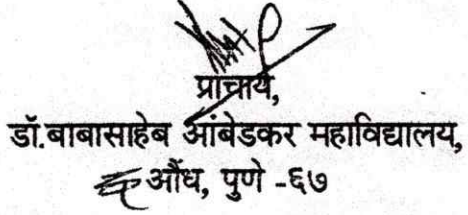 प्राचार्य,
डॉ.बाबासाहेब आंबेडकर महाविद्यालय,
औंध, पुणे -६७